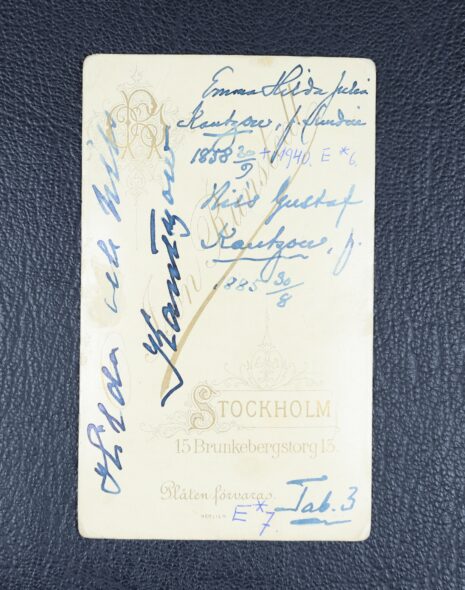 Emma Hilda Julia
Kantzow, f.
1858 30/9 + 1940. E *6
Nils Gustaf
Kantzow, f.
1885 30/8
Hilda och Nils
Kantzow
STOCKHOLM
15 Brunkebergstorg 13.
Plåten förvaras.
E *7
Tab. 3